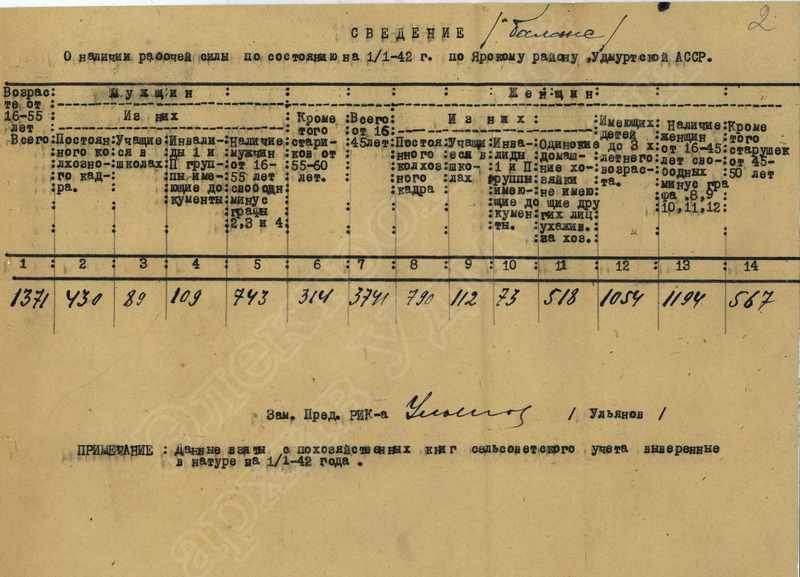 2
СВЕДЕНИЕ /Баланс/
О наличии рабочей силы по состоянию на 1/1-42 г. по Ярскому району, Удмуртской АССР.
Возрас-
те от
16-55
лет
Всего:
Мужчин
Из них
Постоян
ного ко
лхозно-
го кад-
ра.
Учащие
ся в
школах
Инвали-
ды 1 и
II груп-
пы име-
ющие до
кументы
Наличие
мужчин
от 16-
55 лет
свободн
минус
графы
2,3 и 4
Кроме
того
стари-
ков от
55-60
лет.
Женщин
Всего:
от 16
45лет
Из них:
Постоя
нного
колхоз
ного
кадра
Учащи
еся в
шко-
лах
Инва-
лиды
1 и II
группы
имею-
щие до
кумен-
ты.
Одинокие
домаш-
ние хо-
зяйки
не имею
щие дру
гих лиц
ухажив.
за хоз.
Имеющих
детей
до 3 х
летнего
возрас-
та.
Наличие
женщин
от 16-45
лет сво-
бодных
минус гра
фа.8,9
10,11,12
Кроме
того
старушек
от 45-
50 лет
1 2 3 4 5 6 7 8 9 10 11 12 13 14
1371 430 89 109 743 314 3741 790 112 73 518 1054 1194 567
Зам. Пред. РИК-а / Ульянов /
ПРИМЕЧАНИЕ : Данные взяты с похозяйственных книг сельсоветского учета выверенные
в натуре на 1/1-42 года .